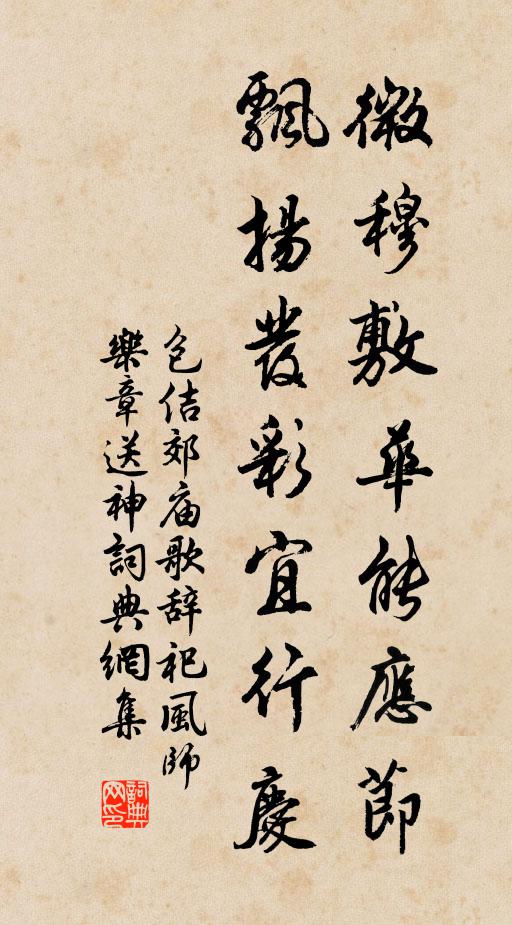 微穆敷華能應節
飄揚發彩宜行慶
包佶郊庙歌辞祀風師
樂章送神詞典網集
詞典网印